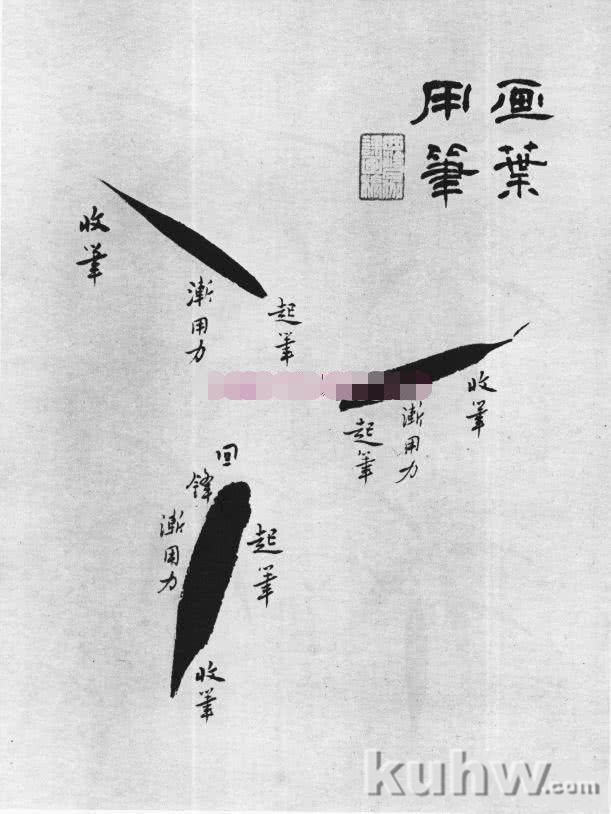 画葉
用筆
起筆
漸用力
收筆
起筆
漸用力
收筆
回鋒
起筆
漸用力
收筆
kuhw.com